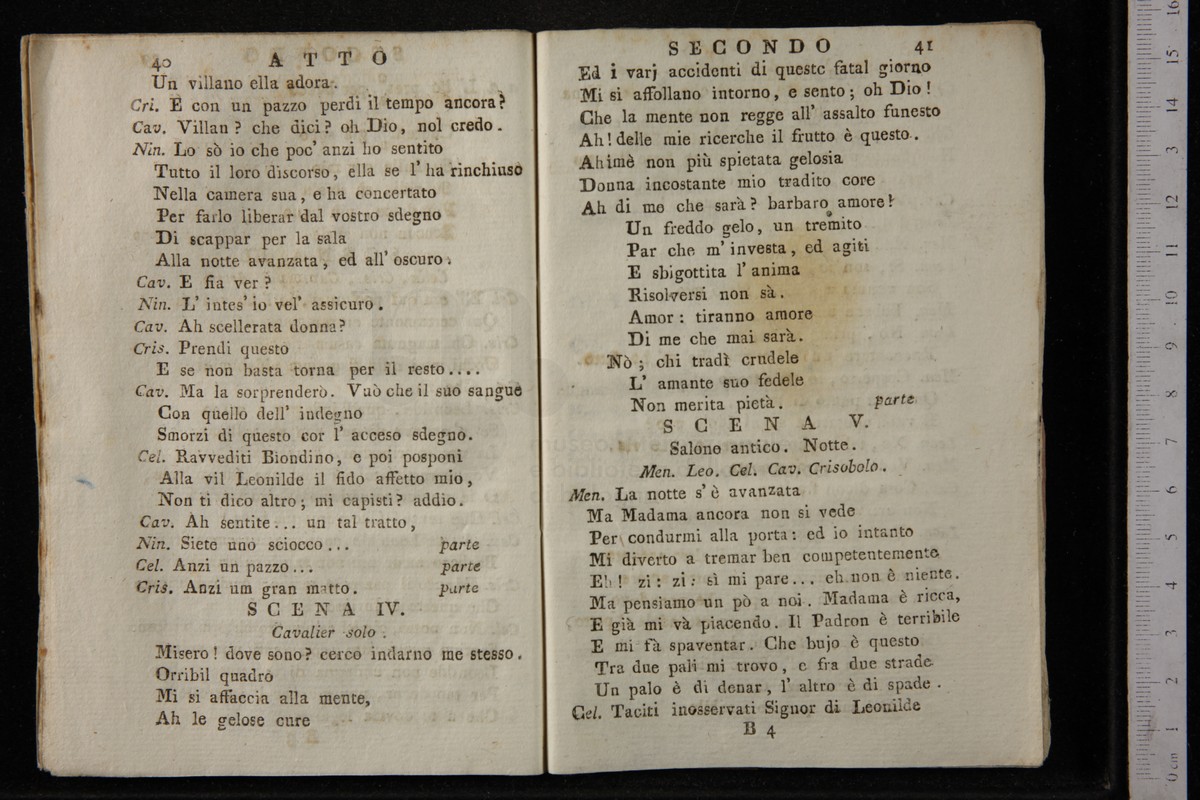 40 ATTO
Un villano ella adora.
Cri. E con un pazzo perdi il tempo ancora?
Cav. Villan? che dici? oh Dio, nol credo.
Nin. Lo sò io che poc' anzi ho sentito
Tutto il loro discorso, ella se l' ha rinchiuso
Nella camera sua, e ha concertato
Per farlo liberar dal vostro sdegno
Di scappar per la sala
Alla notte avanzata, ed all' oscuro.
Cav. E fia ver?
Nin. L' intes' io vel' assicuro.
Cav. Ah scellerata donna?
Cris. Prendi questo
E se non basta torna per il resto....
Cav. Ma la sorprenderò. Vuò che il suo sangue
Con quello dell' indegno
Smorzi di questo cor l' acceso sdegno.
Cel. Ravvediti Biondino, e poi posponi
Alla vil Leonilde il fido affetto mio,
Non ti dico altro; mi capisti? addio.
Cav. Ah sentite... un tal tratto,
Nin. Siete uno sciocco... parte
Cel. Anzi un pazzo... parte
Cris. Anzi um gran matto. parte
SCENA IV.
Cavalier solo.
Misero! dove sono? cerco indarno me stesso.
Orribil quadro
Mi si affaccia alla mente,
Ah le gelose cure
SECONDO 41
Ed i varj accidenti di queste fatal giorno
Mi si affollano intorno, e sento; oh Dio!
Che la mente non regge all' assalto funesto
Ah! delle mie ricerche il frutto è questo.
Ahimè non più spietata gelosia
Donna incostante mio tradito core
Ah di me che sarà? barbaro amore!
Un freddo gelo, un tremito
Par che m' investa, ed agiti
E sbigottita l' anima
Risolversi non sà.
Amor: tiranno amore
Di me che mai sarà.
Nò; chi tradì crudele
L' amante suo fedele
Non merita pietà. parte
SCENA V.
Salone antico. Notte.
Men. Leo. Cel. Cav. Crisobolo.
Men. La notte s' è avanzata
Ma Madama ancora non si vede
Per condurmi alla porta: ed io intanto
Mi diverto a tremar ben competentemente
Eh! zi: zi: sì mi pare... eh non è niente.
Ma pensiamo un pò a noi. Madama è ricca,
E già mi và piacendo. Il Padron è terribile
E mi fà spaventar. Che bujo è questo
Tra due pali mi trovo, e fra due strade
Un palo è di denar, l' altro è di spade.
Cel. Taciti inosservati Signor di Leonilde
B 4
0 cm 1 2 3 4 5 6 7 8 9 10 11 12 13 14 15 16